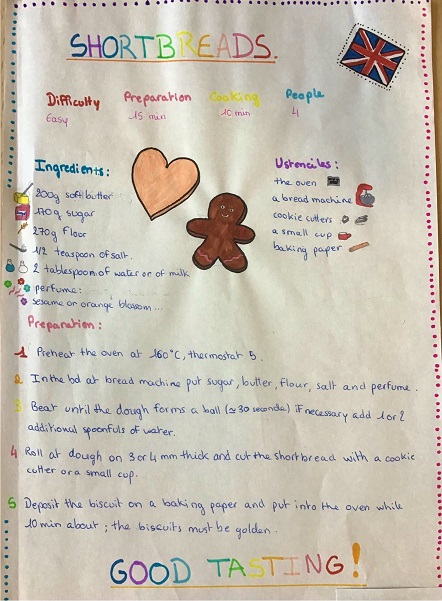 SHORTBREADS.
Difficulty Preparation Cooking People
Easy 15 min 10 min 4
Ingredients:
200g soft butter
170g sugar
270g floor
1/2 teaspoon of salt.
2 tablespoon of water or of milk
perfume:
sesame or orange blossom...
Ustenciles:
the oven
a bread machine
cookie cutters
a small cup
baking paper
Preparation:
1 Preheat the oven at 160°C, thermostat 5.
2 In the bol at bread machine put sugar, butter, flour, salt and perfume.
3 Beat until the dough forms a ball (≈30 seconde) if necessary add 1 or 2
additional spoonfuls of water.
4 Roll at dough on 3 or 4 mm thick and cut the shortbread with a cookie
cutter or a small cup.
5 Deposit the biscuit on a baking paper and put into the oven while
10 min about; the biscuits must be golden.
GOOD TASTING!